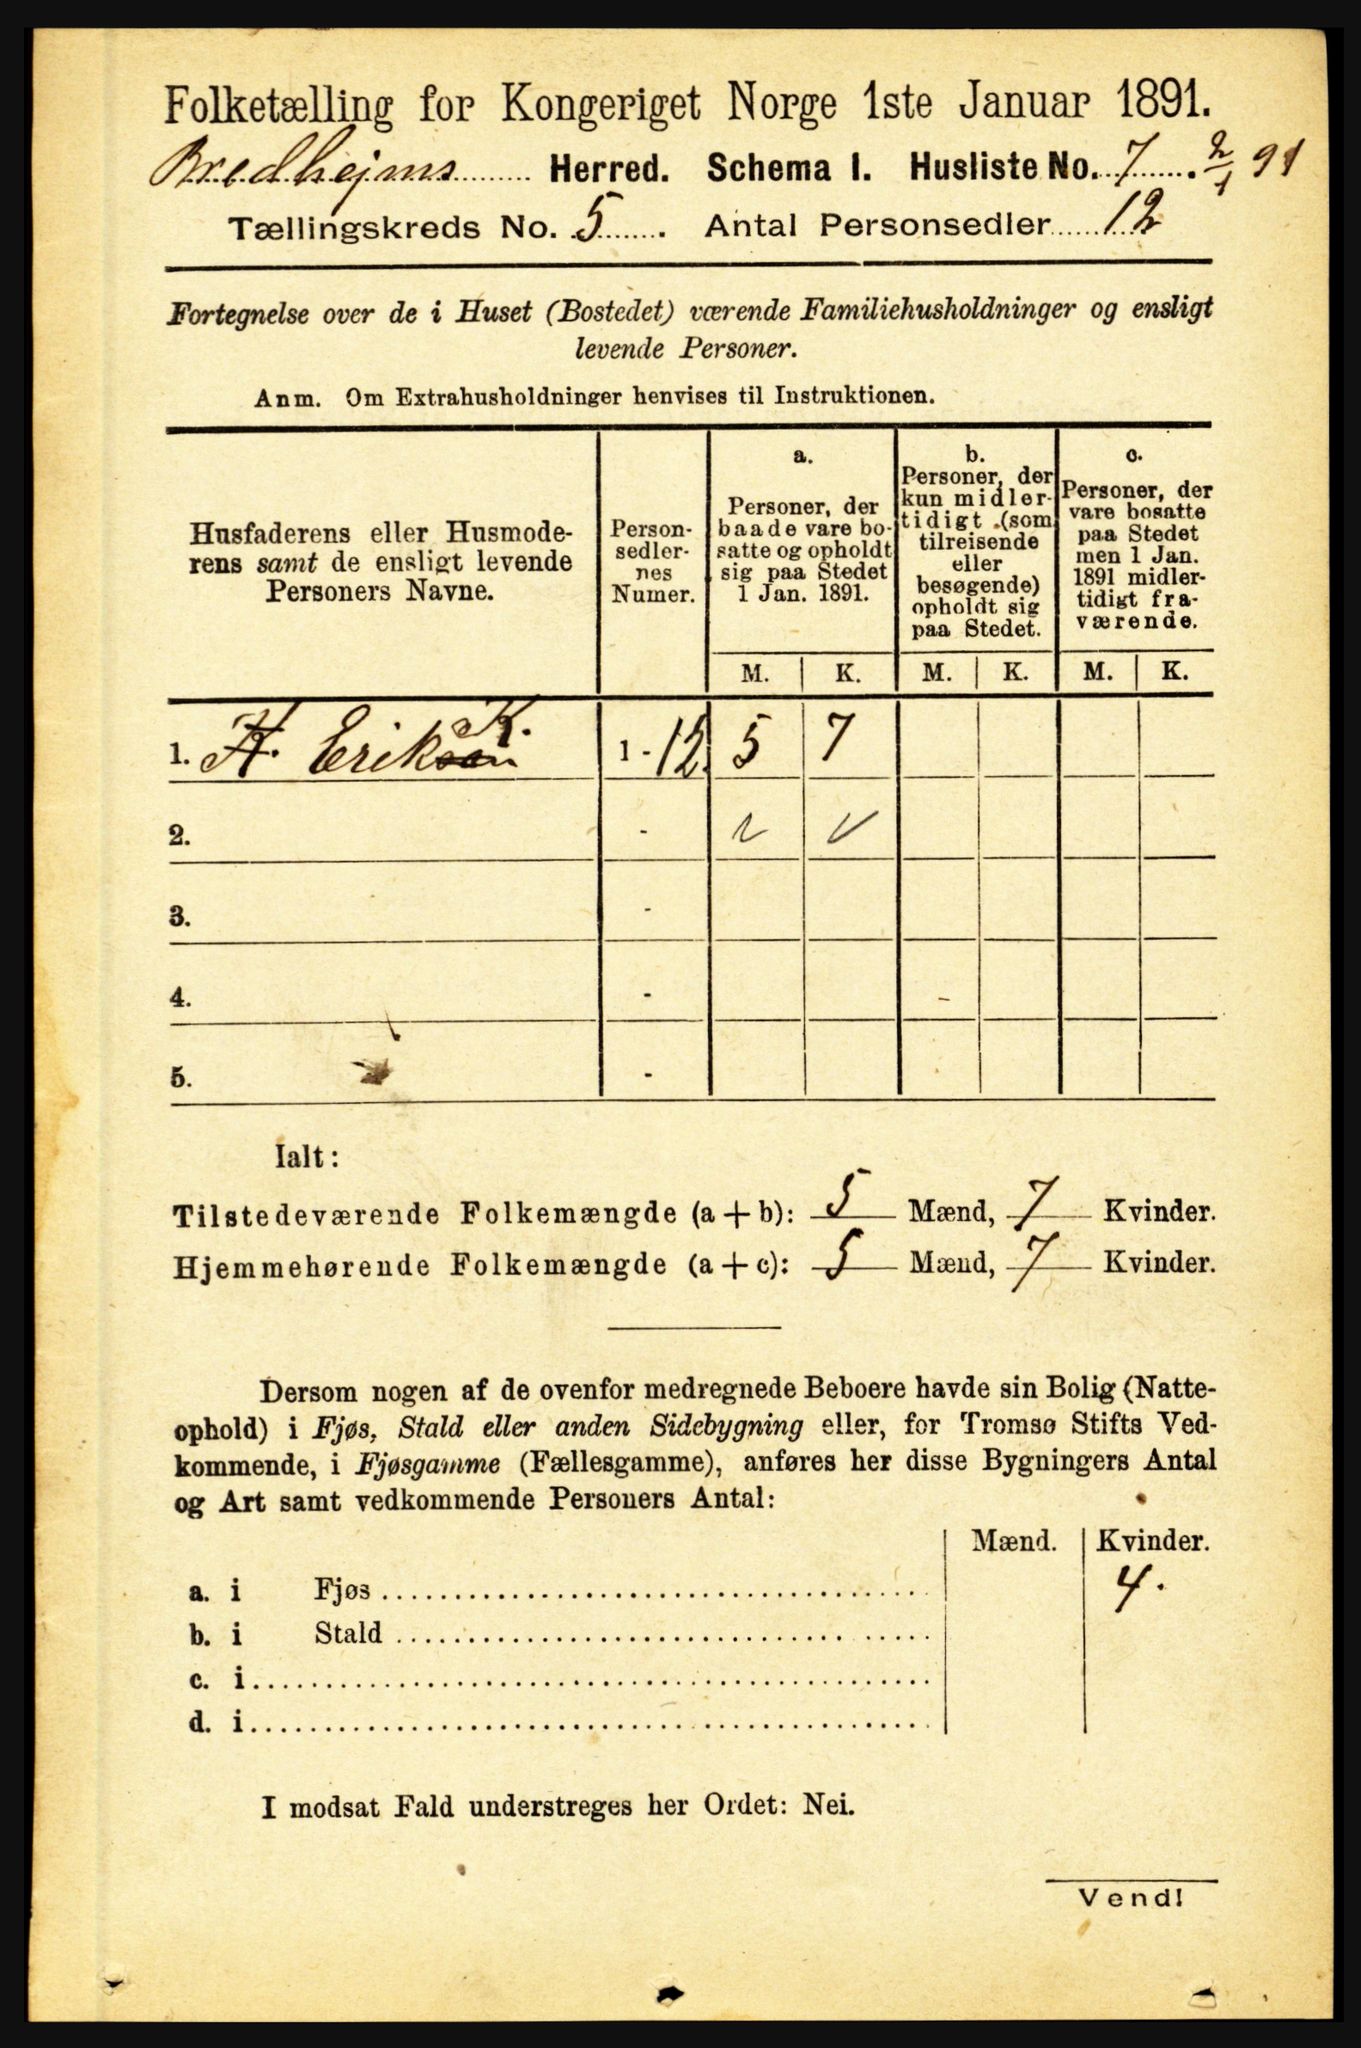 Folketælling for Kongeriget Norge 1ste Januar 1891.
Bredhejms Herred. Schema I. Husliste No. 7. 2/1 91
Tællingskreds No. 5. Antal Personsedler 12
Fortegnelse over de i Huset (Bostedet) værende Familiehusholdninger og ensligt
levende Personer.
Anm. Om Extrahusholdninger henvises til Instruktionen.
Husfaderens eller Husmode-
rens samt de ensligt levende
Personers Navne.
Person-
sedler-
nes
Numer.
a.
Personer, der
baade vare bo-
satte og opholdt
sig paa Stedet
1 Jan. 1891.
b.
Personer, der
kun midler-
tidigt (som
tilreisende
eller
besøgende)
opholdt sig
paa Stedet.
c.
Personer, der
vare bosatte
paa Stedet
men 1 Jan.
1891 midler-
tidigt fra-
værende.
M. K. M. K. M. K.
1. H. Eriksen K. 1 - 12. 5 7
2. -
3. -
4. -
5. -
Ialt:
Tilstedeværende Folkemængde (a + b): 5 Mænd, 7 Kvinder.
Hjemmehørende Folkemængde (a + c): 5 Mænd, 7 Kvinder.
Dersom nogen af de ovenfor medregnede Beboere havde sin Bolig (Natte-
ophold) i Fjøs, Stald eller anden Sidebygning eller, for Tromsø Stifts Ved-
kommende, i Fjøsgamme (Fællesgamme), anføres her disse Bygningers Antal
og Art samt vedkommende Personers Antal:
Mænd. Kvinder.
a. i Fjøs 4.
b. i Stald
c. i
d. i
I modsat Fald understreges her Ordet: Nei.
Vend!